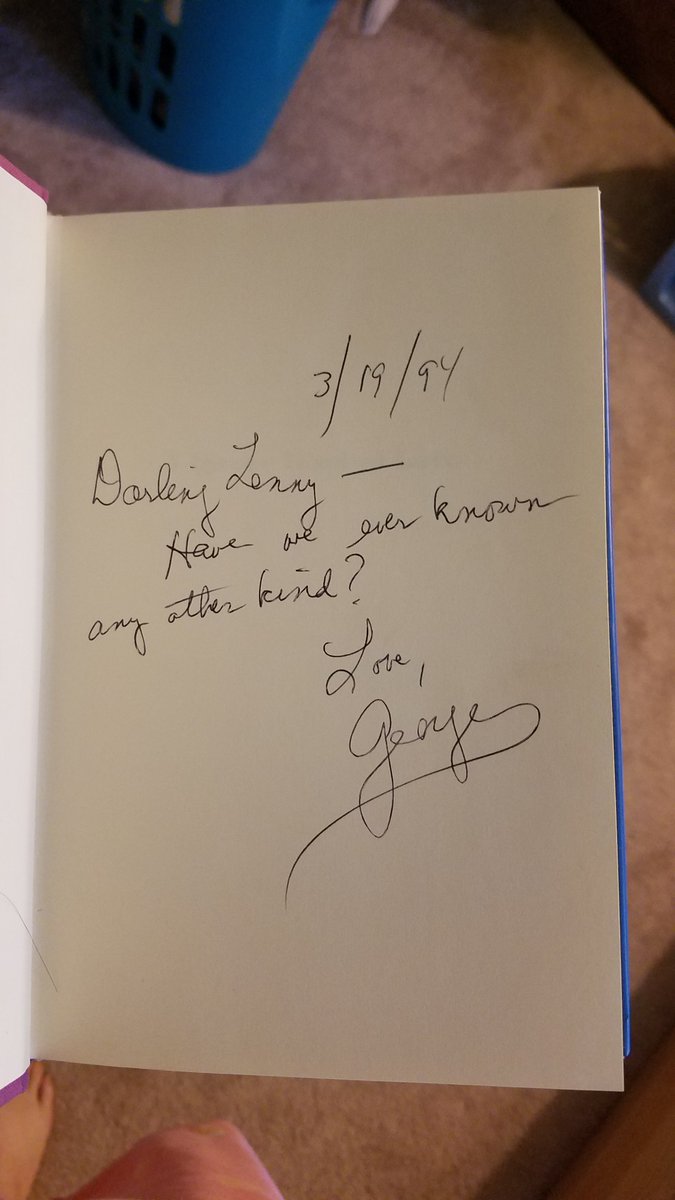 3/19/94
Darling Lenny —
Have we ever known
any other kind?
Love,
George